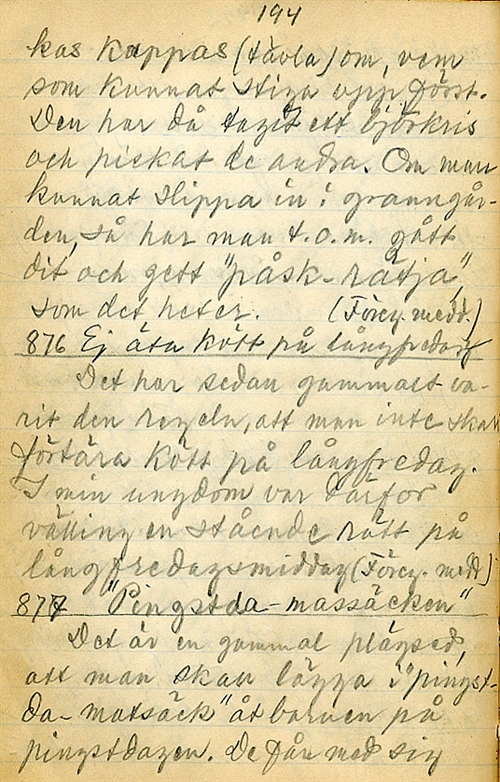 194
kas kappas (tävla) om, vem
som kunnat stiga upp först.
Den har då tagit ett björkris
och piskat de andra. Om man
kunnat slippa in i granngår-
den, så har man t.o.m. gått
dit och gett "påsk-rätja",
som det heter. (Föreg. medd.)
876 Ej äta kött på långfredag
Det har sedan gammalt va-
rit den regeln, att man inte skall
förtära kött på långfredag.
I min ungdom var därför
välling en stående rätt på
långfredagsmiddag (Föreg. medd)
877 "Pingstda-massäcken"
Det är en gammal plägsed,
att man skall lägga i "pingst-
da-matsäck" åt barnen på
pingstdagen. De får med sig